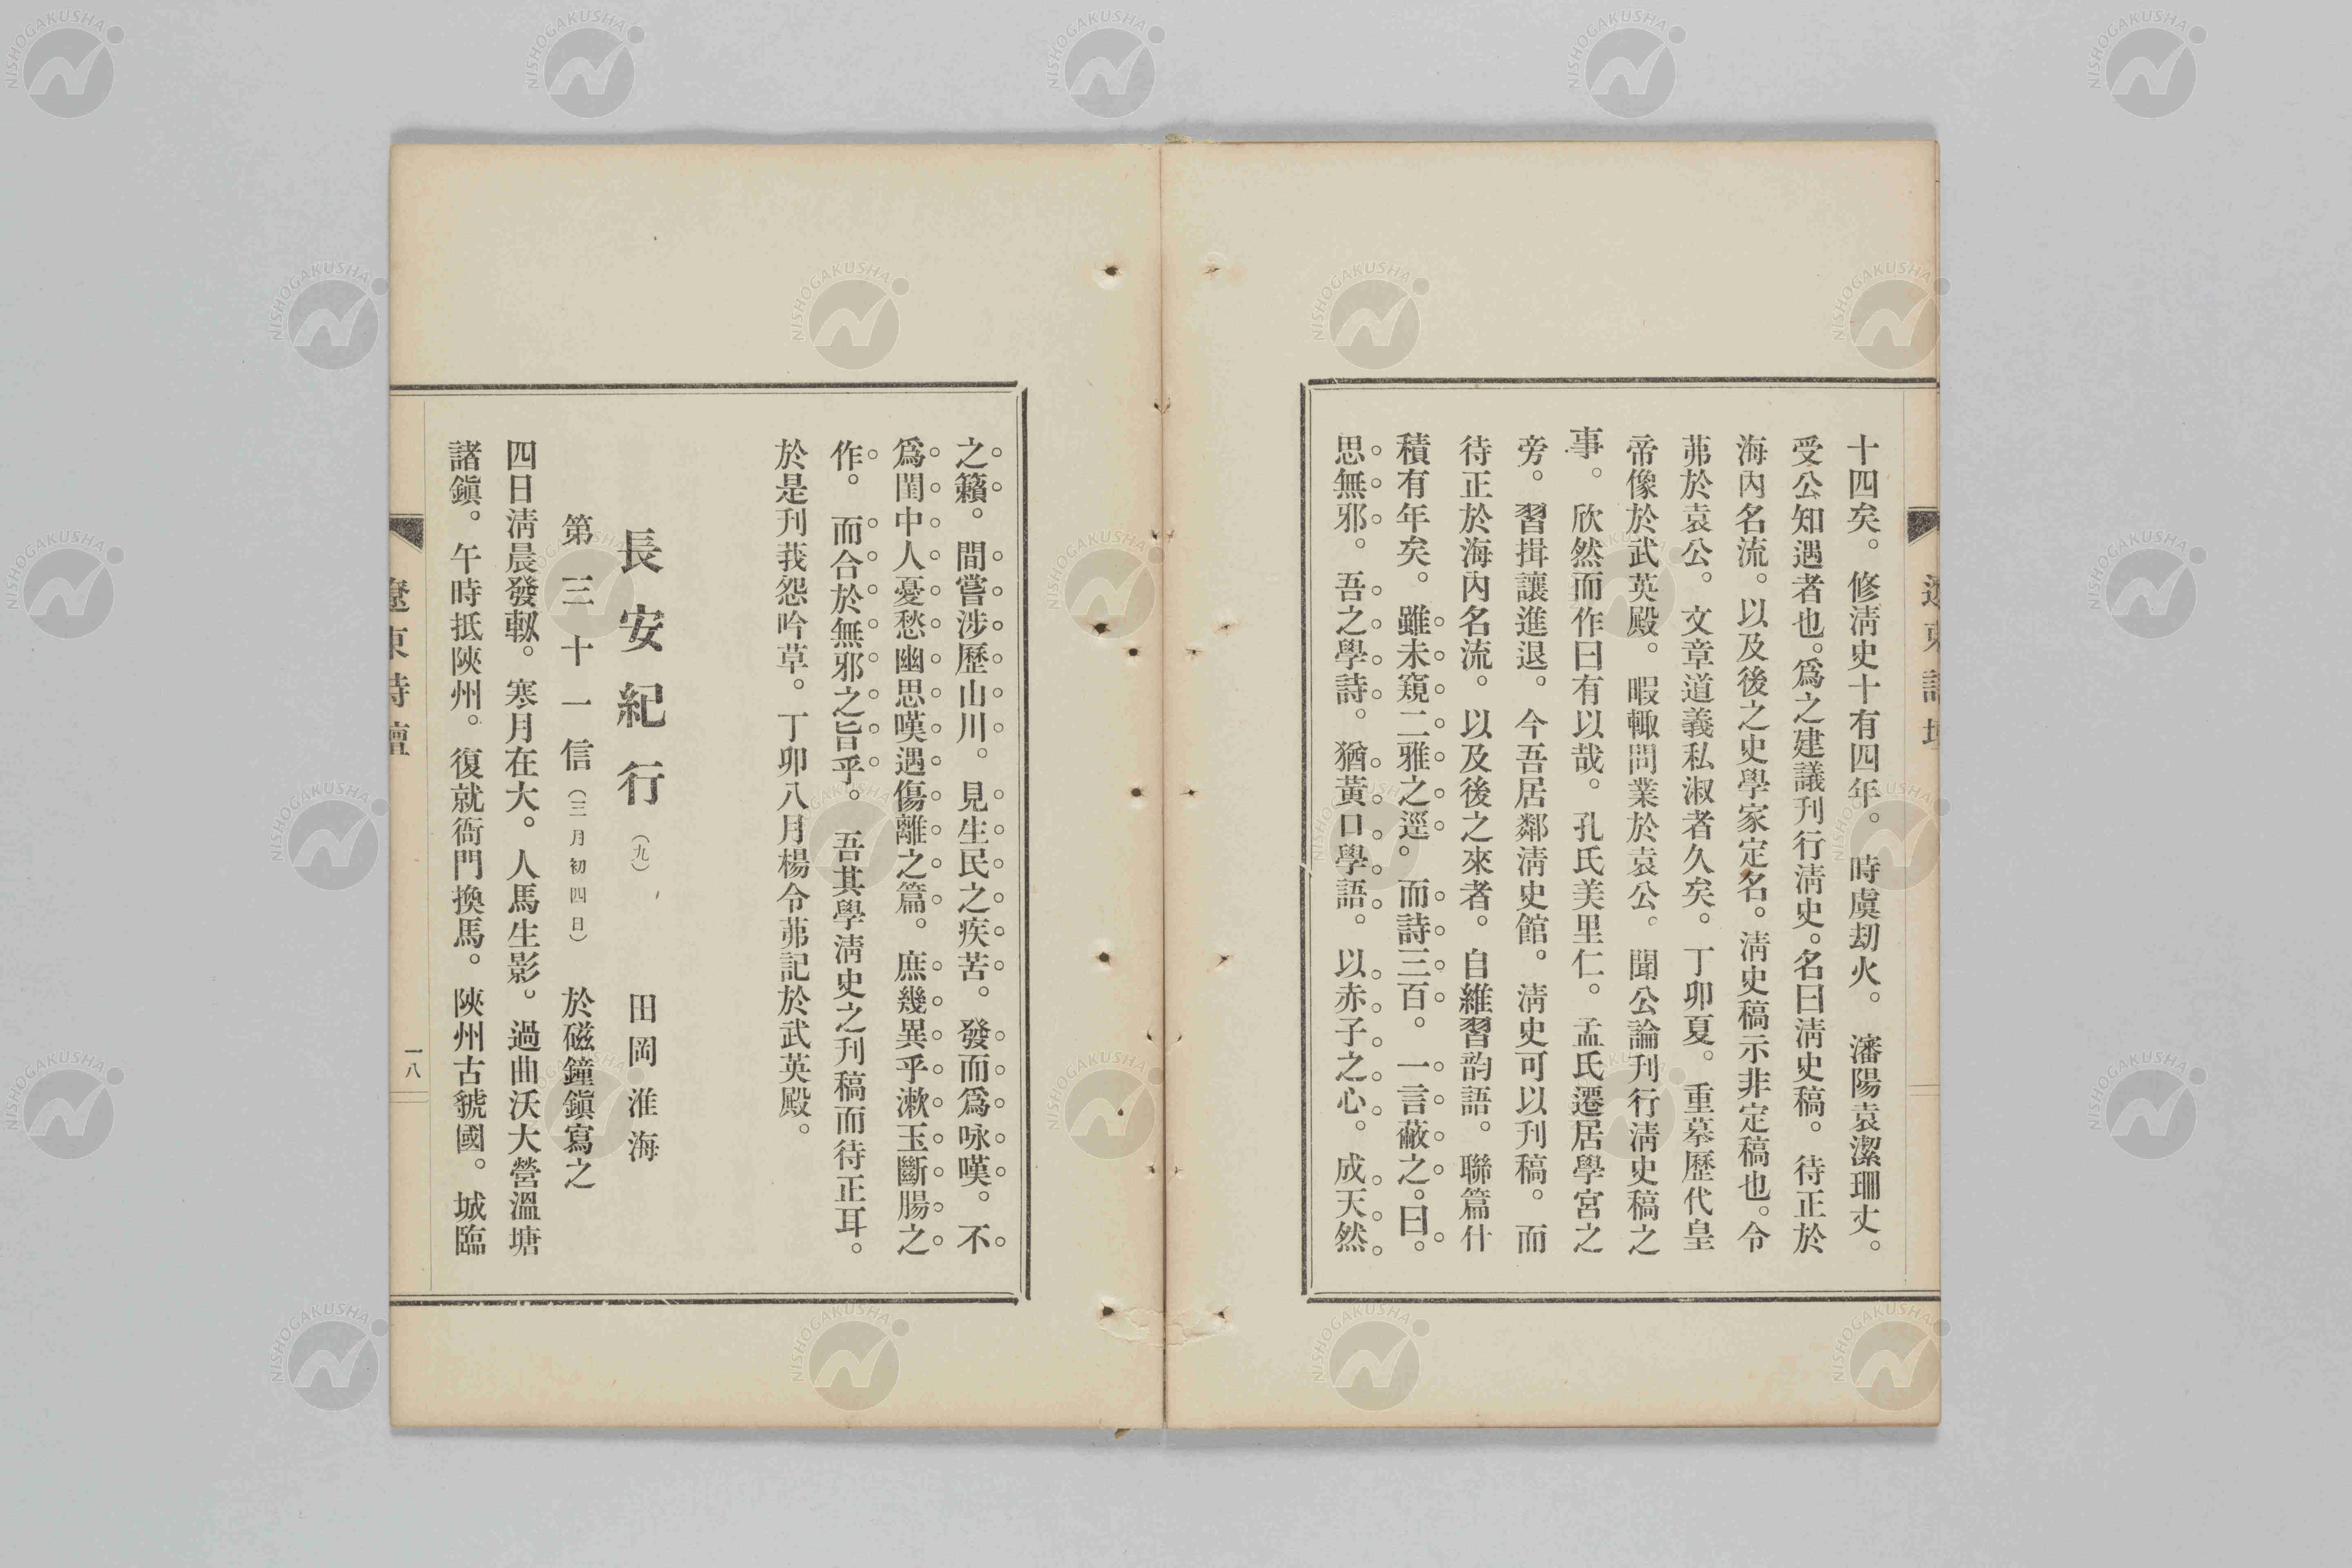 十四矣。修淸史十有四年。時虞刧火。瀋陽袁潔珊丈。
受公知遇者也。爲之建議刊行淸史。名曰淸史稿。待正於
海內名流。以及後之史學家定名。淸史稿示非定稿也。令
茀於袁公。文章道義私淑者久矣。丁卯夏。重摹歷代皇
帝像於武英殿。暇輙問業於袁公。聞公論刊行淸史稿之
事。欣然而作曰有以哉。孔氏美里仁。孟氏遷居學宮之
旁。習揖讓進退。今吾居鄰淸史館。淸史可以刊稿。而
待正於海內名流。以及後之來者。自維習韵語。聯篇什
積有年矣。雖未窺二雅之逕。而詩三百。一言蔽之。曰。
思無邪。吾之學詩。猶黃口學語。以赤子之心。成天然
之籟。間嘗涉歷山川。見生民之疾苦。發而爲咏嘆。不
爲閨中人憂愁幽思嘆遇傷離之篇。庶幾異乎漱玉斷腸之
作。而合於無邪之旨乎。吾其學淸史之刋稿而待正耳。
於是刊莪怨吟草。丁卯八月楊令茀記於武英殿。
長安紀行(九) 田岡淮海
第三十一信(三月初四日) 於磁鐘鎭寫之
四日淸晨發軔。寒月在大。人馬生影。過曲沃大營溫塘
諸鎭。午時抵陝州。復就衙門換馬。陝州古虢國。城臨
遼東詩壇
一八